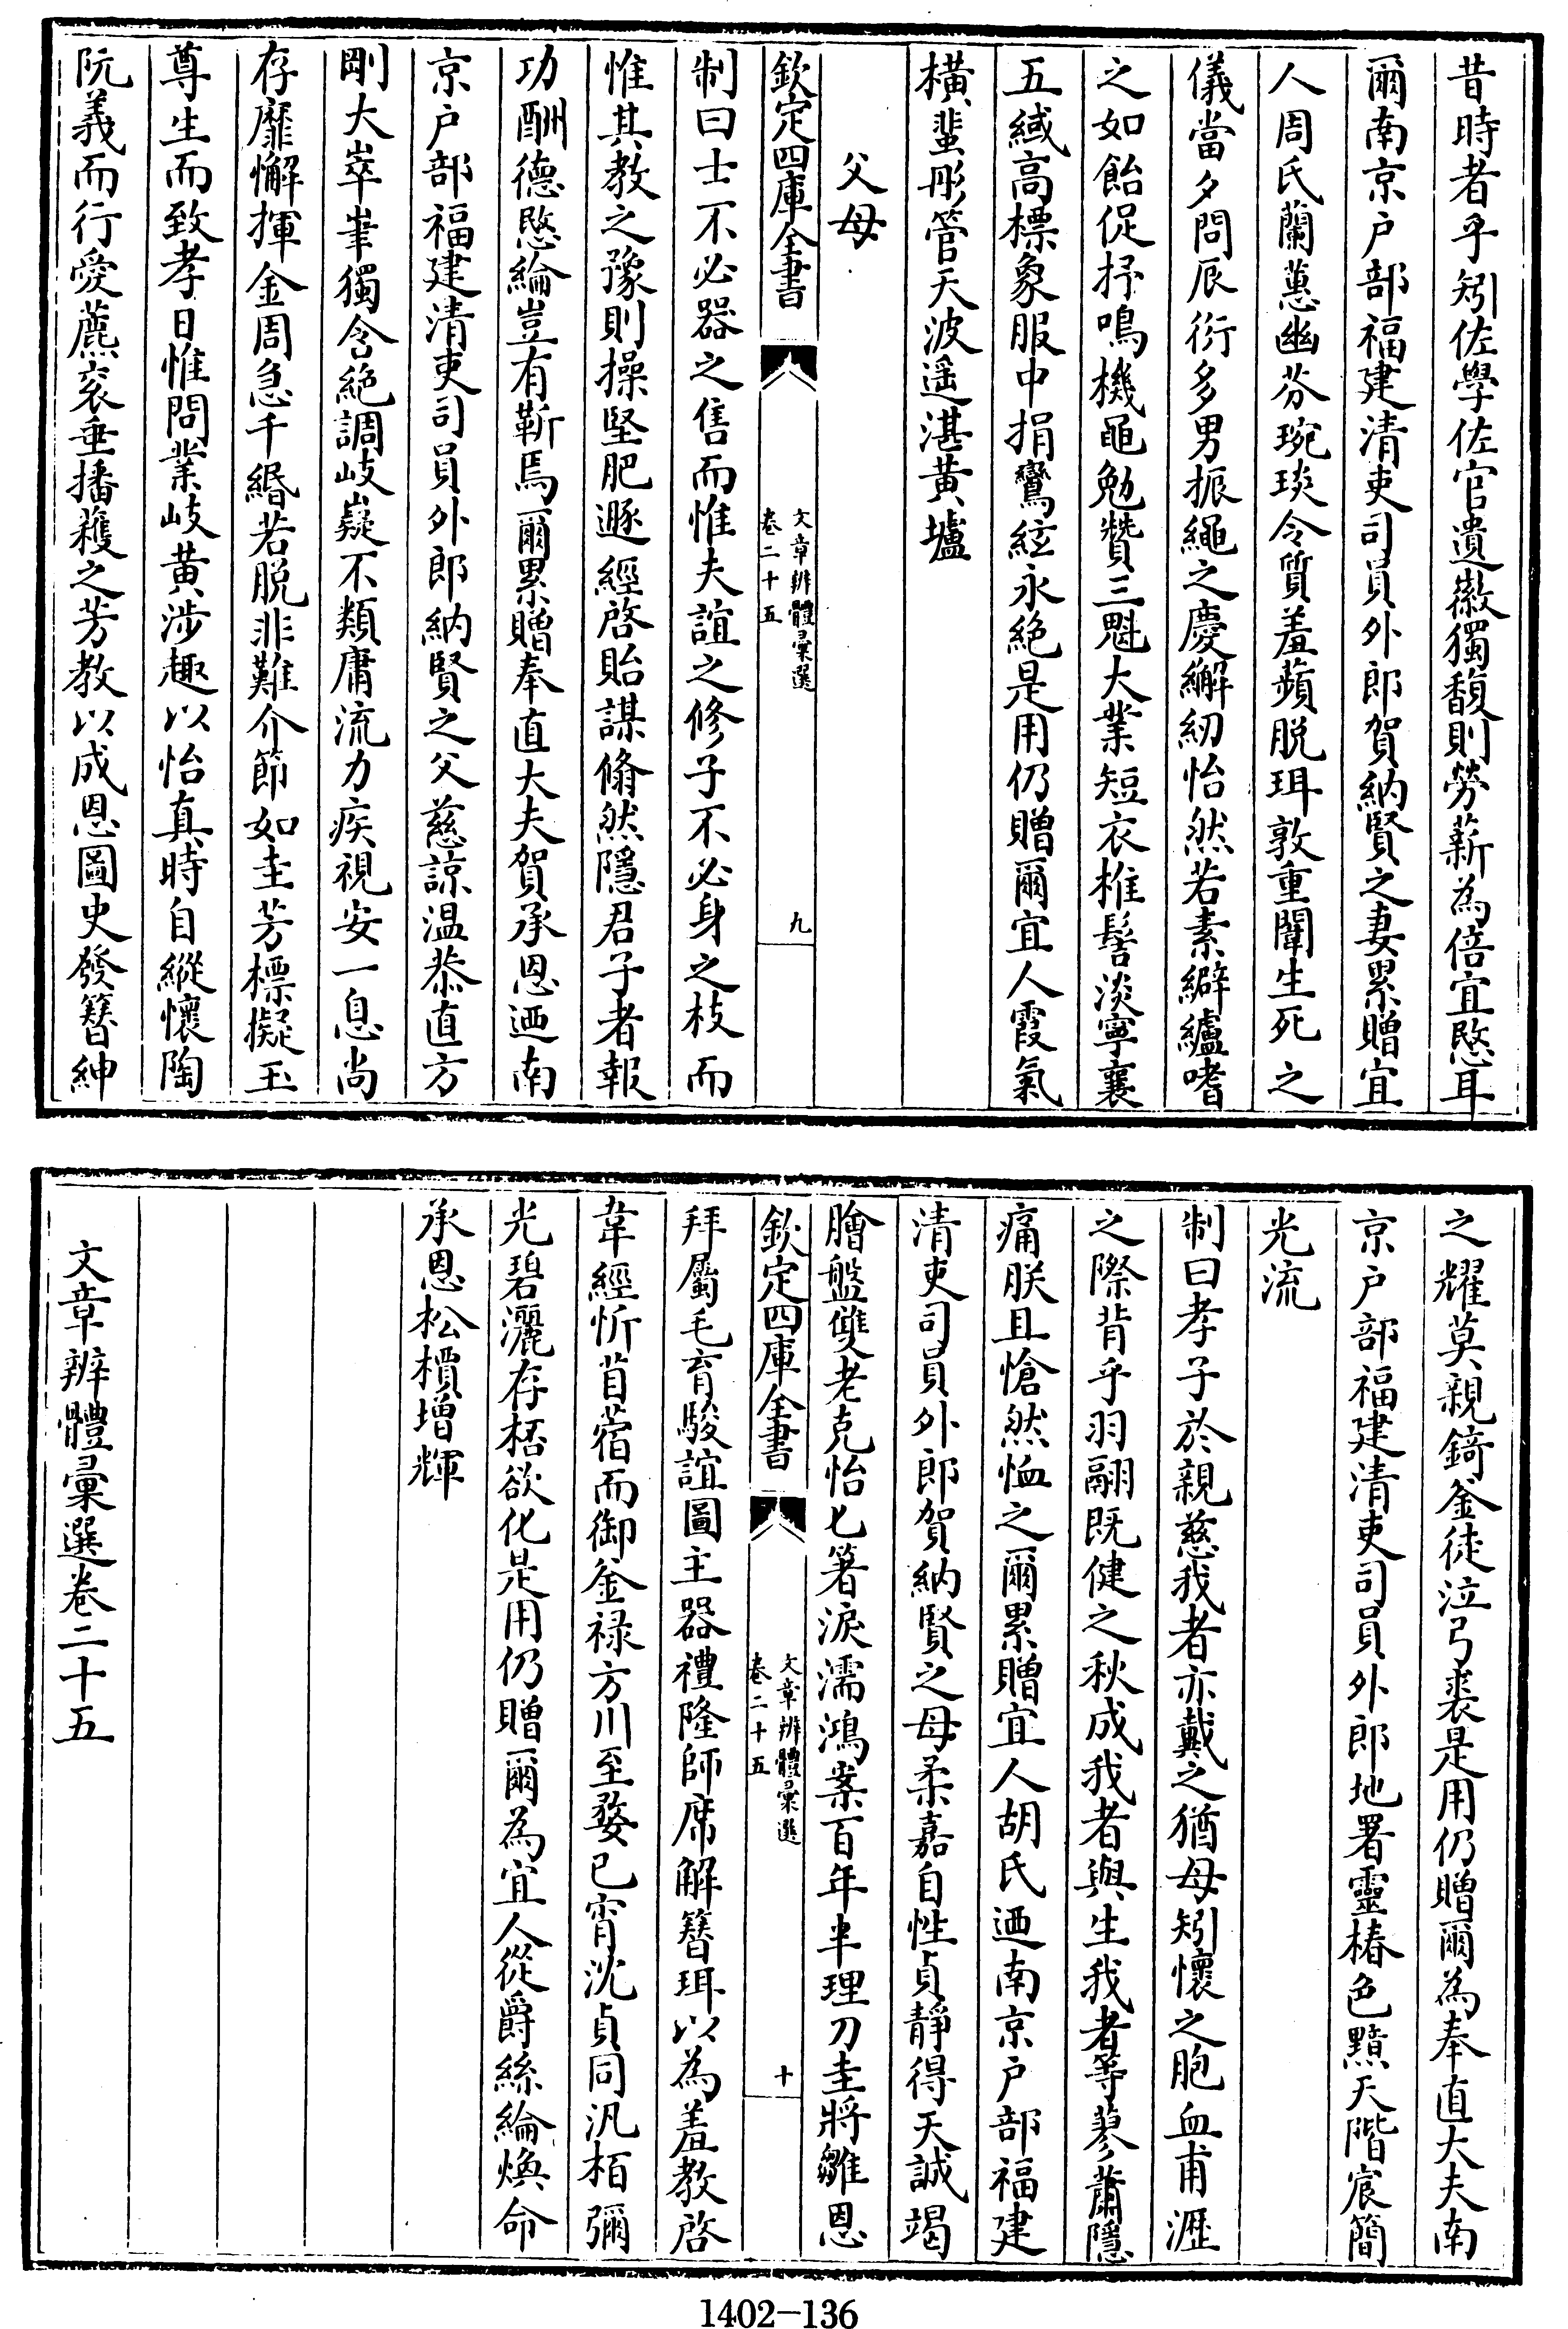 昔時者乎矧佐學佐官遺徽獨馥則勞薪為倍宜愍耳
爾南京户部福建清吏司員外郎賀納賢之妻累贈宜
人周氏蘭蕙幽芬琬琰令質羞蘋脱珥敦重闈生死之
儀當夕問辰衍多男振繩之慶纚紉怡然若素繂纑嗜
之如飴促抒鳴機黽勉贊三魁大業短衣椎髻淡寧襄
五緎高標象服中捐鸞絃永絶是用仍贈爾宜人霞氣
橫蜚彤管天波遥湛黄壚
父母
欽定四庫全書
文章辨體彙選
卷二十五
九
制曰士不必器之售而惟夫誼之修子不必身之枝而
惟其教之豫則操堅肥遯經啓貽謀翛然隱君子者報
功酬德愍綸豈有靳焉爾累贈奉直大夫賀承恩迺南
京户部福建清吏司員外郎納賢之父慈諒温恭直方
剛大崒峯獨含絶調岐嶷不類庸流力疾視安一息尚
存靡懈揮金周急千緡若脱非難介節如圭芳標擬玉
尊生而致孝日惟問業岐黄涉趣以怡真時自縱懷陶
阮義而行愛薦衮垂播穫之芳教以成恩圖史發簪紳
之耀莫親錡釜徒泣弓裘是用仍贈爾為奉直大夫南
京户部福建清吏司員外郎地署靈椿色黯天階宸簡
光流
制曰孝子於親慈我者亦戴之猶母矧懷之胞血甫瀝
之際背乎羽翮既健之秋成我者與生我者等蓼蕭隱
痛朕且愴然恤之爾累贈宜人胡氏迺南京户部福建
清吏司員外郎賀納賢之母柔嘉自性貞靜得天誠竭
膾盤雙老克怡匕箸淚濡鴻案百年半理刀圭將雛恩
欽定四庫全書
文章辨體彙選
卷二十五
十
拜屬毛育駿誼圖主器禮隆師席解簪珥以為羞教啓
韋經忻苜蓿而御釜禄方川至婺已宵沈貞同汎栢彌
光碧灑存桮欲化是用仍贈爾為宜人從爵絲綸煥命
承恩松檟增輝
文章辨體彙選卷二十五
1402-136